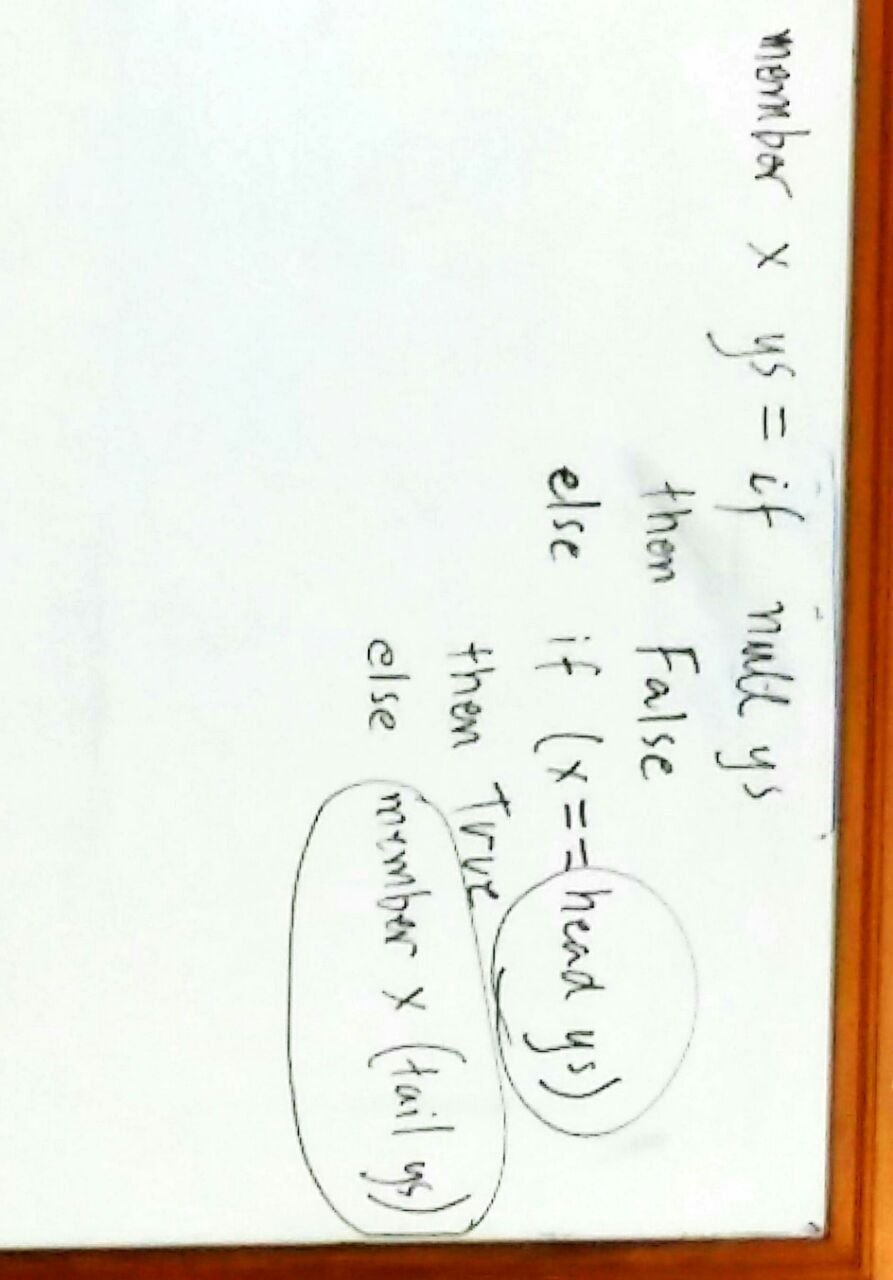 member x ys = if null ys
then False
else if (x == head ys)
then True
else member x (tail ys)